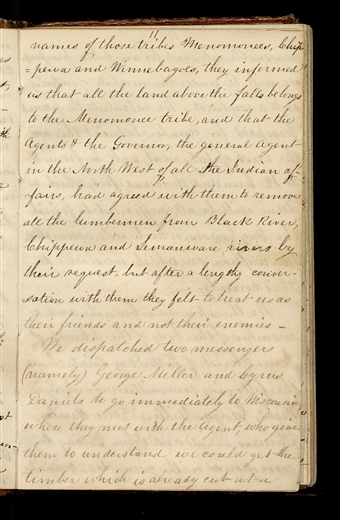 11
names of those tribes Menomonees, Chip-
=pewa and Winnebagoes, they informed
us that all the land above the falls belongs
to the Menomonee tribe, and that the
Agents & the Governor, the general Agent
in the North West of all the Indian af-
fairs, had agreed with them to remove
all the lumbermen from Black River,
Chippewa and Lemanware rivers by
their request, but after a lengthy conver-
-sation with them they felt to treat us as
their friends and not their enemies -
We dispatched two messengers
(namely) George Miller and Cyrus
Daniels to go immediately to Wisconsin
where they met with the Agent, who give
them to understand we could get the
timber which is already cut at a